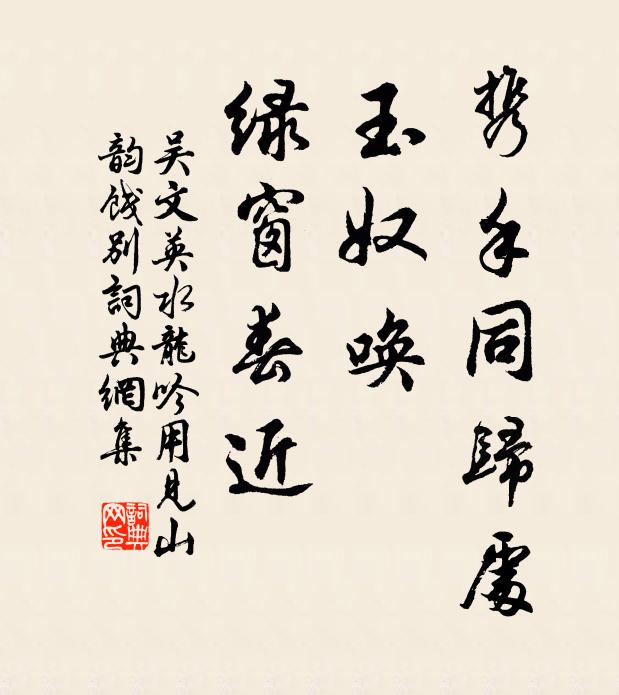 携手同歸處
玉奴唤
緑窗春近
吴文英水龍吟用見山
韵餞别詞典網集
詞典网印